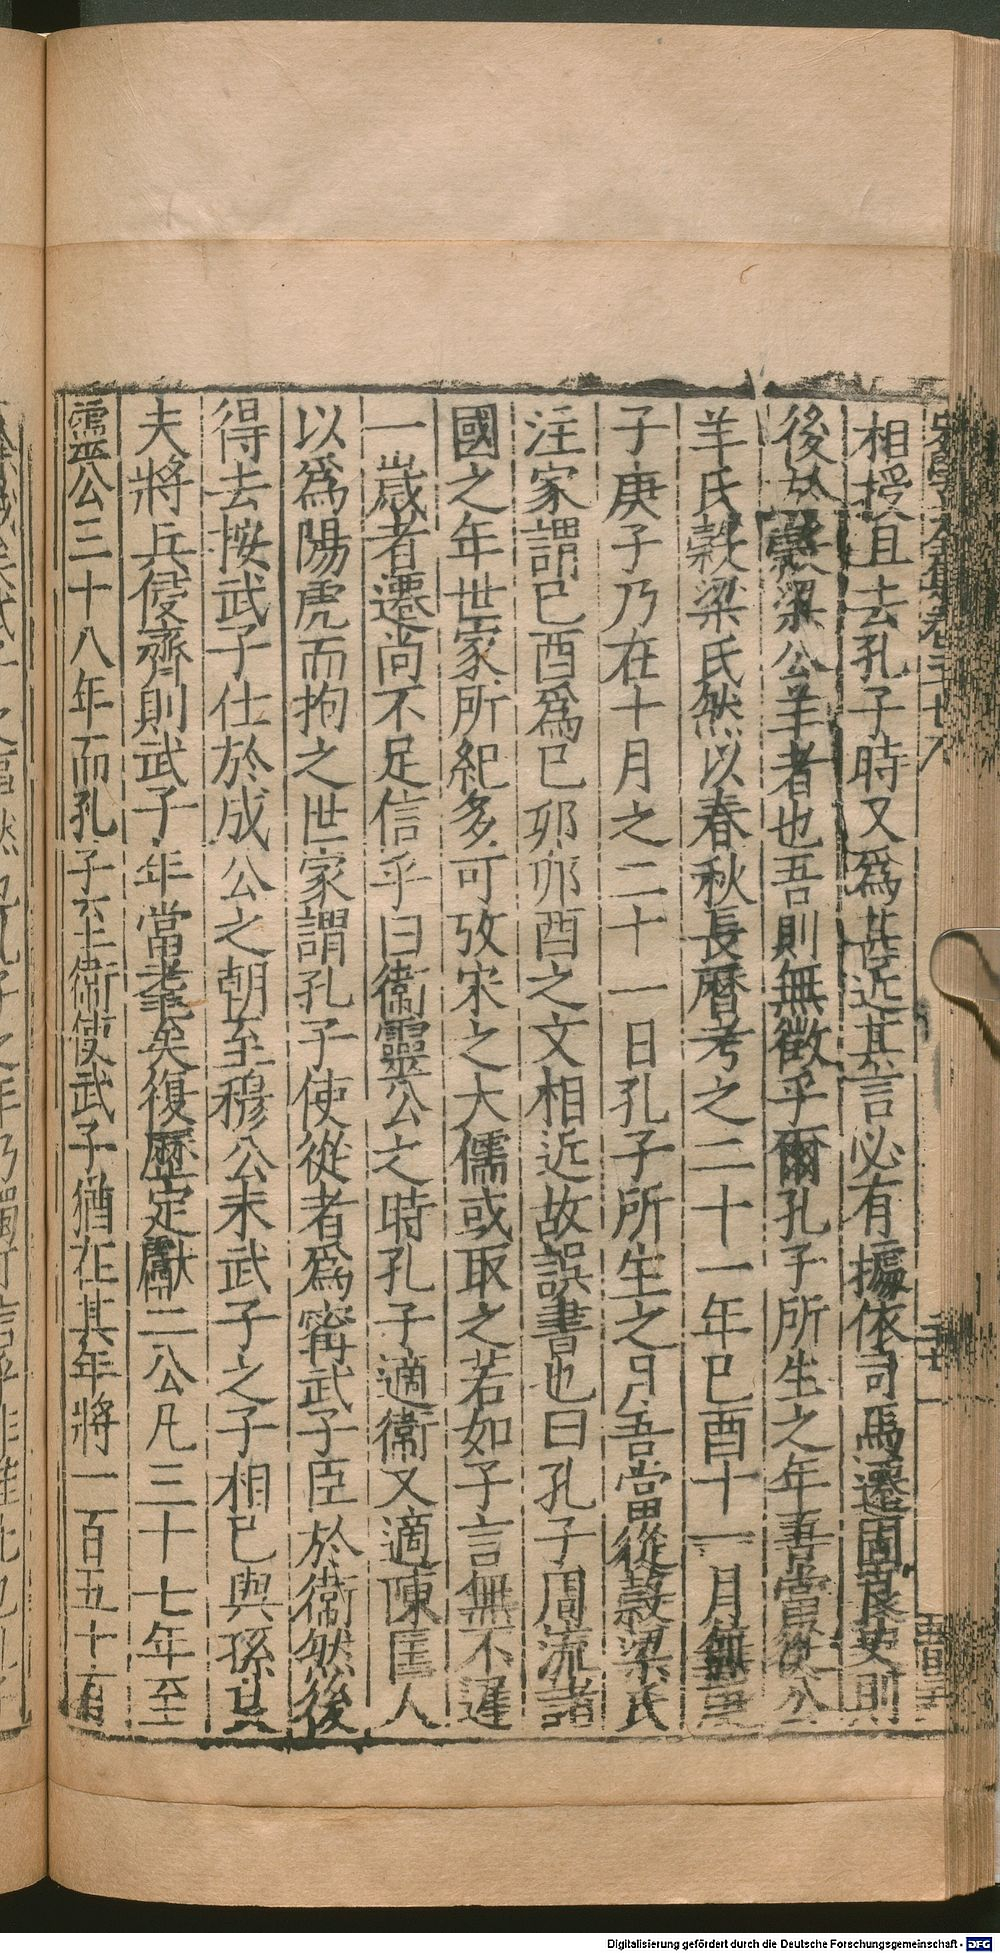 相授且去孔子時又爲甚近其言必有據依司馬遷固良史則
後於穀梁公羊者也吾則無徵乎爾孔子所生之年吾當從公
羊氏穀梁氏然以春秋長曆考之二十一年巳酉十一月無庚
子庚子乃在十月之二十一日孔子所生之月吾當從穀梁氏
注家謂巳酉爲巳卯卯酉之文相近故誤書也曰孔子周流諸
國之年世家所紀多可攷宋之大儒或取之若如子言無不遲
一歲者遷尚不足信乎曰衞靈公之時孔子適衞又適陳匡人
以爲陽虎而拘之世家謂孔子使從者爲甯武子臣於衞然後
得去按武子仕於成公之朝至穆公末武子之子相巳與孫其
夫將兵侵齊則武子年當耄矣復歷定獻二公凡三十七年至
靈公三十八年而孔子至衞使武子猶在其年將一百五十有
Digitalisierung gefördert durch die Deutsche Forschungsgemeinschaft - DFG